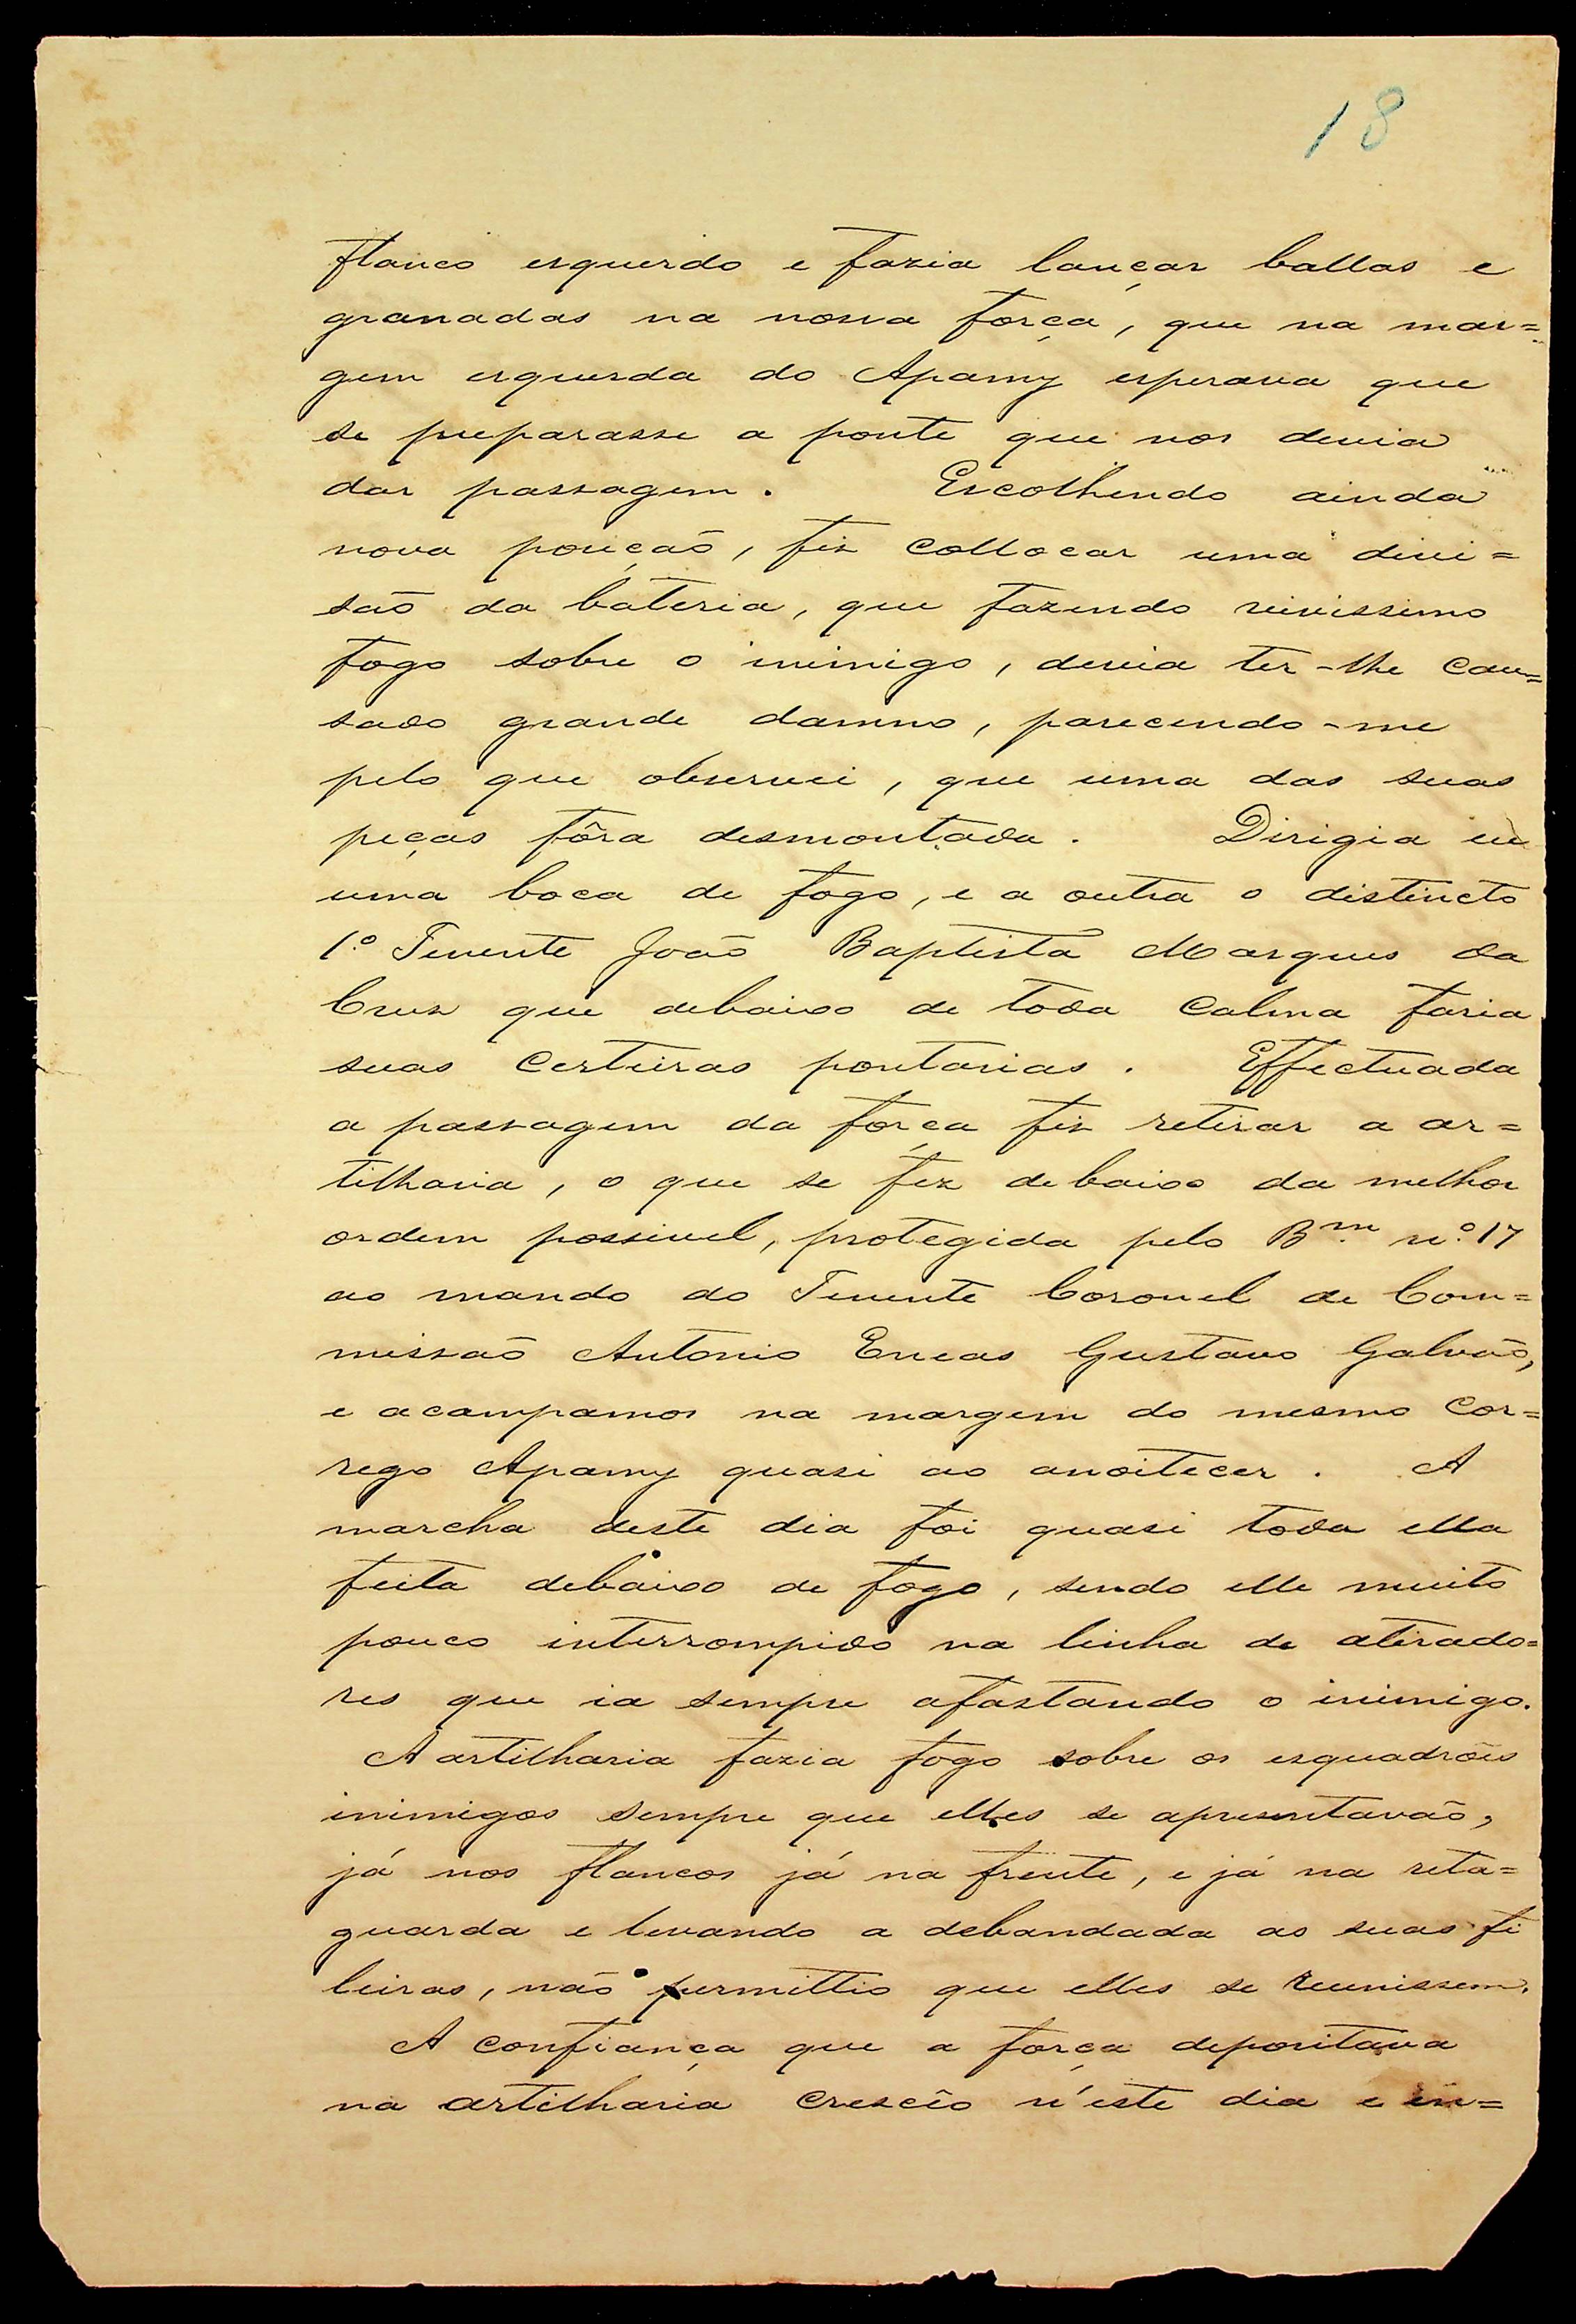 18
flanco esquerdo e fazia lançar ballas e
granadas na nossa força, que na mar=
gem esquerda do Apamy esperava que
se preparasse a ponte que nos devia
dar passagem. Escolhendo ainda
nova posição, fiz collocar uma divi=
são da bateria, que fazendo vivissimo
fogo sobre o inimigo, devia ter-lhe cau=
sado grande damno, parecendo-me
pelo que observei, que uma das suas
peças fôra desmontada. Dirigia eu
uma boca de fogo, e a outra o distincto
1.º Tenente João Baptista Marques da
Cruz que debaixo de toda calma fazia
suas certeiras pontarias. Effectuada
a passagem da força fiz retirar a ar=
tilharia, o que se fez debaixo da melhor
ordem possivel, protegida pelo B.m n.º 17
ao mando do Tenente Coronel de Com=
missão Antonio Eneas Gustavo Galvão,
e acampamos na margem do mesmo Cor=
rego Apamy quasi ao anoitecer. A
marcha deste dia foi quasi toda ella
feita debaixo de fogo, sendo elle muito
pouco interrompido na linha de atirado=
res que ia sempre afastando o inimigo.
A artilharia fazia fogo sobre os esquadrões
inimigos sempre que elles se apresentavão,
já nos flancos já na frente, e já na reta=
guarda e levando a debandada as suas fi
leiras, não permittio que elles se reunissem.
A confiança que a força depositava
na artilharia cresceo n'este dia e en=